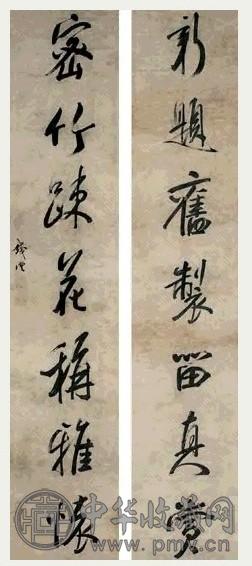 新題舊製留真賞
密竹疎花稱雅懷
錢灃
中华收藏网
www.pmx.cn